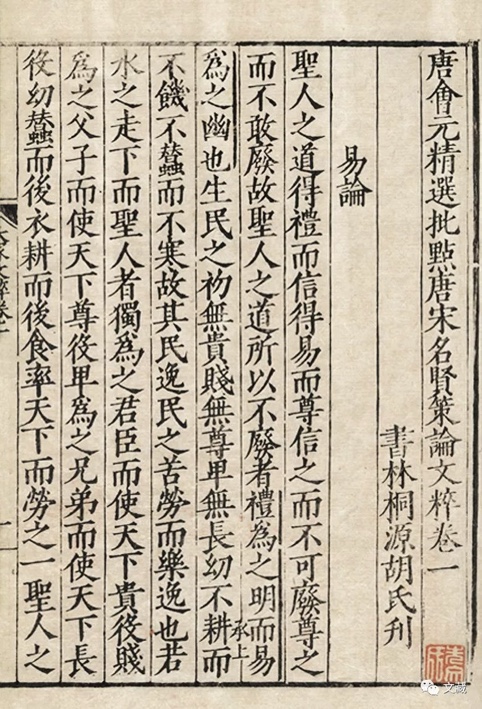 唐會元精選批點唐宋名賢策論文粹卷一
書林桐源胡氏刋
易論
聖人之道得禮而信得易而尊信之而不可廢尊之
而不敢廢故聖人之道所以不廢者禮爲之明而易
承上
爲之幽也生民之初無貴賤無尊卑無長幼不耕而
不饑不蠶而不寒故其民逸民之苦勞而樂逸也若
水之走下而聖人者獨爲之君臣而使天下貴役賤
爲之父子而使天下尊役卑爲之兄弟而使天下長
役幼蠶而後衣耕而後食率天下而勞之一聖人之
一
文藏